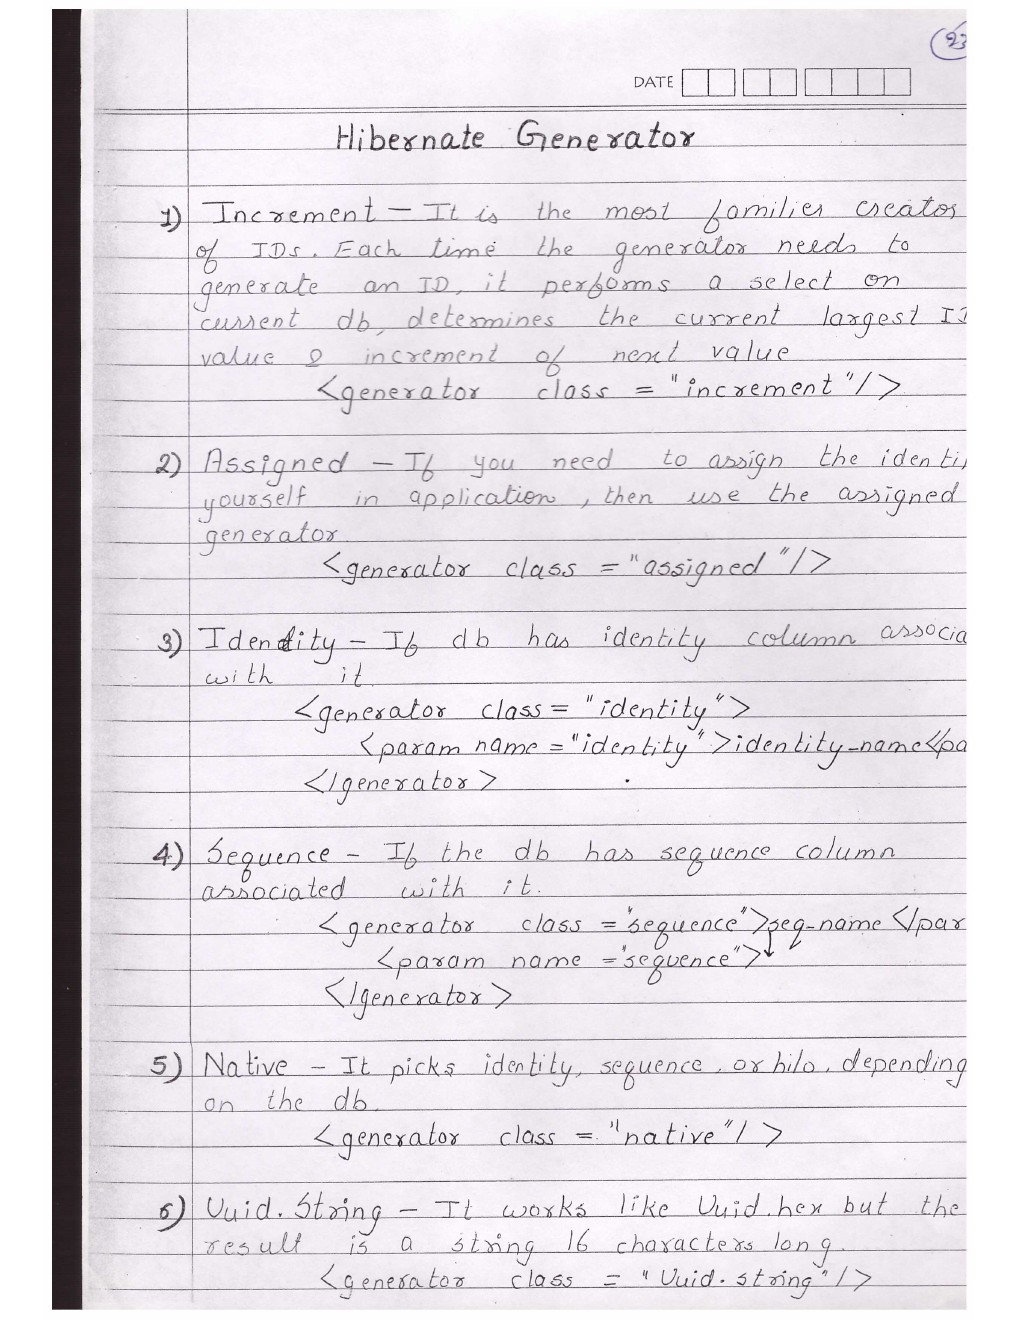 23
DATE
Hibernate Generator
1) Increment - It is the most familier creator
of IDs. Each time the generator needs to
generate an ID, it performs a select on
current db, determines the current largest
value & increment of next value
<generator class = "increment"/>
2) Assigned - If you need to assign the identi
yourself in application, then use the assigned
generator.
<generator class = "assigned"/>
3) Identity - If db has identity column associa
with it
<generator class = "identity">
<param name = "identity">identity-name</pa
</generator>
4) Sequence - If the db has sequence column
associated with it.
<generator class = "sequence">seq-name </par
<param name = "sequence">↓
</generator>
5) Native - It picks identity, sequence, or hilo, depending
on the db.
<generator class = "native"/>
6) Uuid.String - It works like Uuid.hex but the
result is a string 16 characters long.
<generator class = "Uuid.string"/>